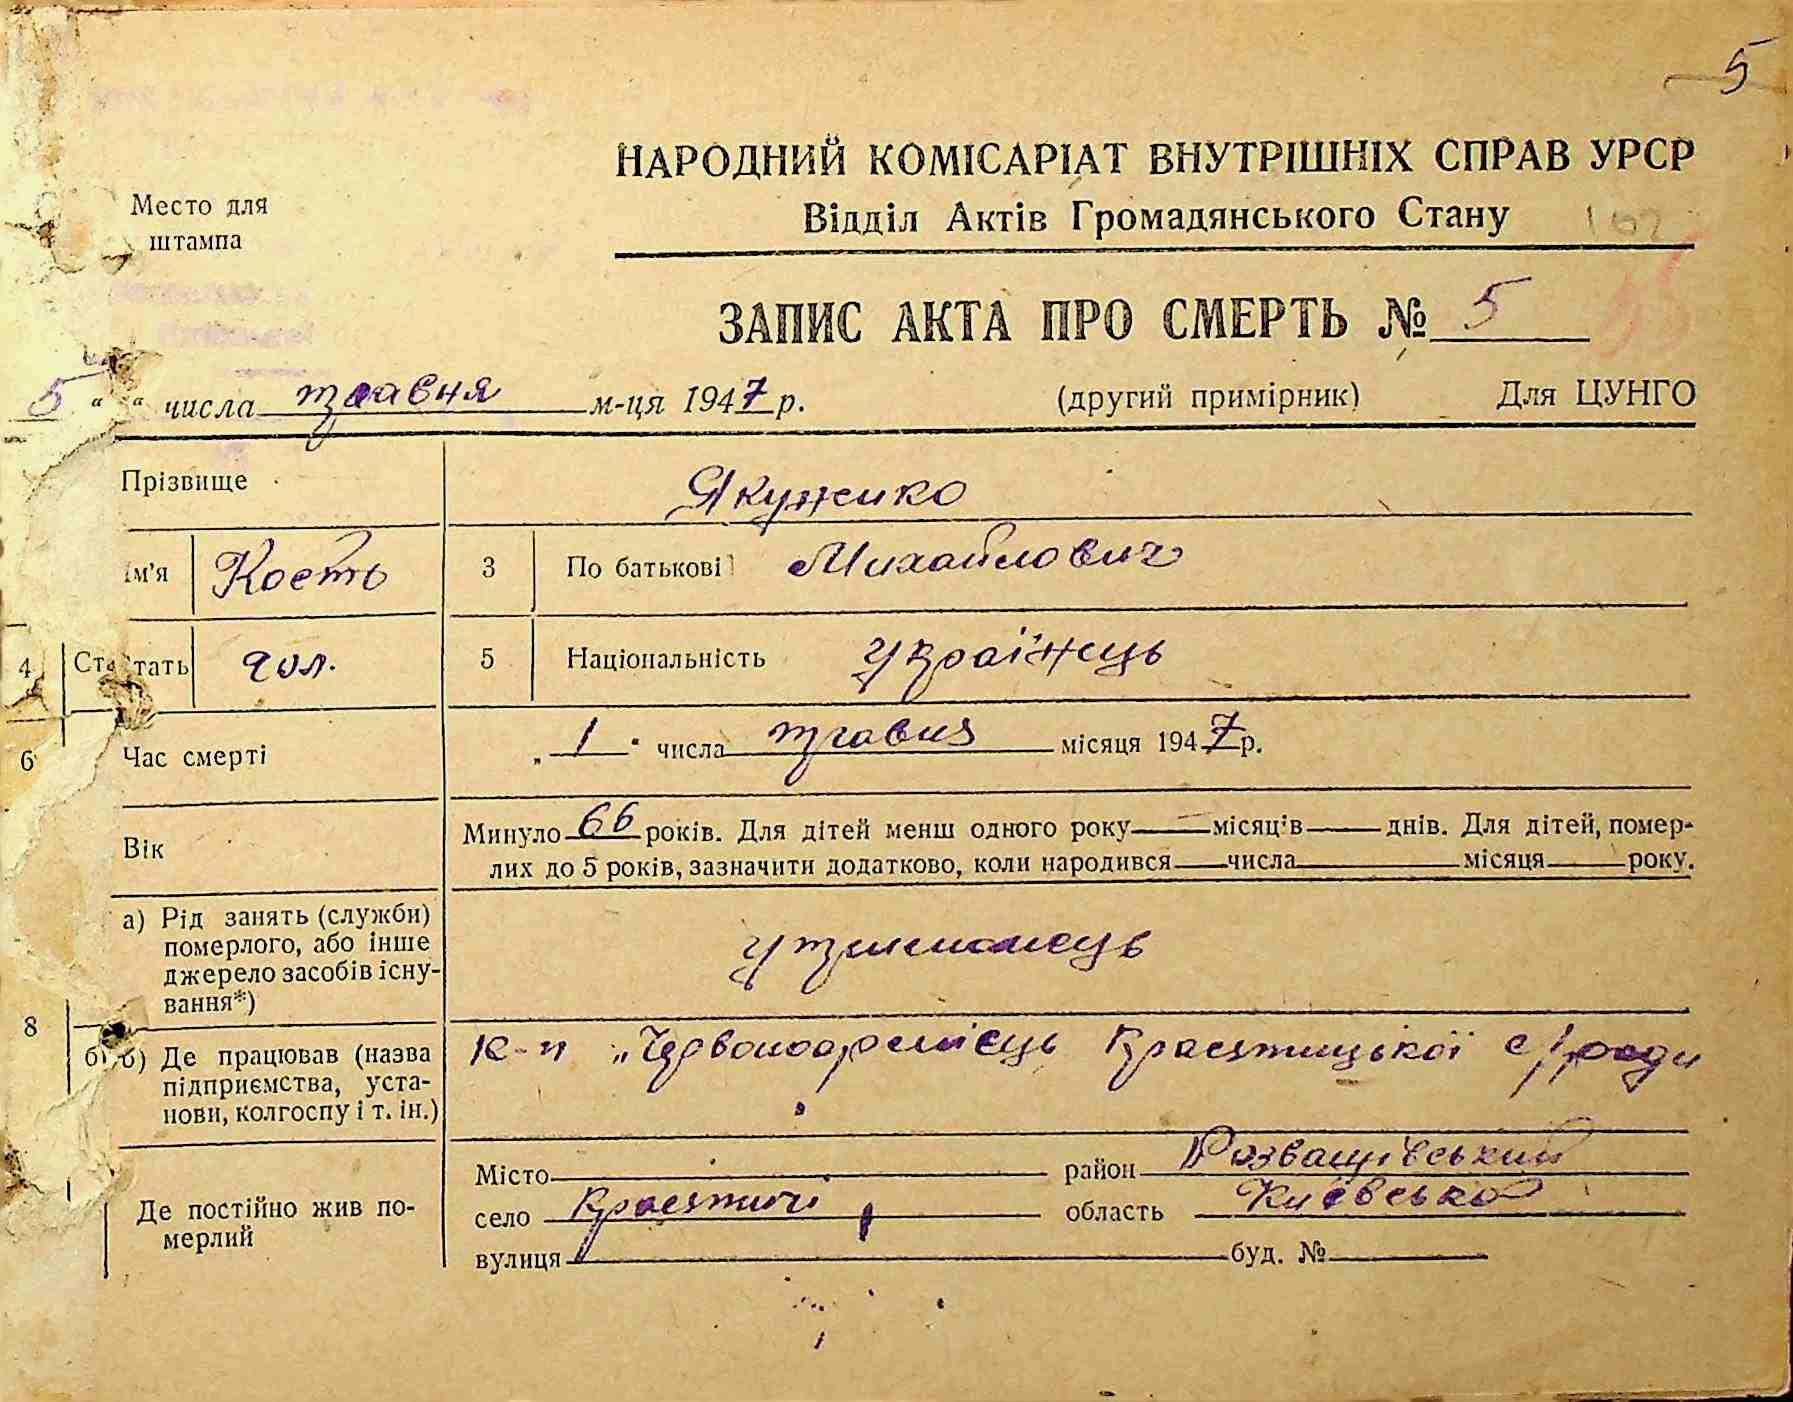 5
НАРОДНИЙ КОМІСАРІАТ ВНУТРІШНІХ СПРАВ УРСР
Відділ Актів Громадянського Стану
Место для
штампа
ЗАПИС АКТА ПРО СМЕРТЬ № 5
5 " " числа травня м-ця 1947 р. (другий примірник) Для ЦУНГО
Прізвище Якуженко
Ім'я Кость 3 По батькові Михайлович
4 Стать чол. 5 Національність українець
6 Час смерті „ 1 " числа травня місяця 1947 р.
Вік Минуло 66 років. Для дітей менш одного року місяців днів. Для дітей, помер-
лих до 5 років, зазначити додатково, коли народився числа місяця року.
8 а) Рід занять (служби)
померлого, або інше
джерело засобів існу-
вання*)
утриманець
б) Де працював (назва
підприємства, уста-
нови, колгоспу і т. ін.)
к-п „Червоноармієць Красятицької с/ради
Де постійно жив по-
мерлий
Місто район Розважівський
село Красятичі область Київсько
вулиця буд. №